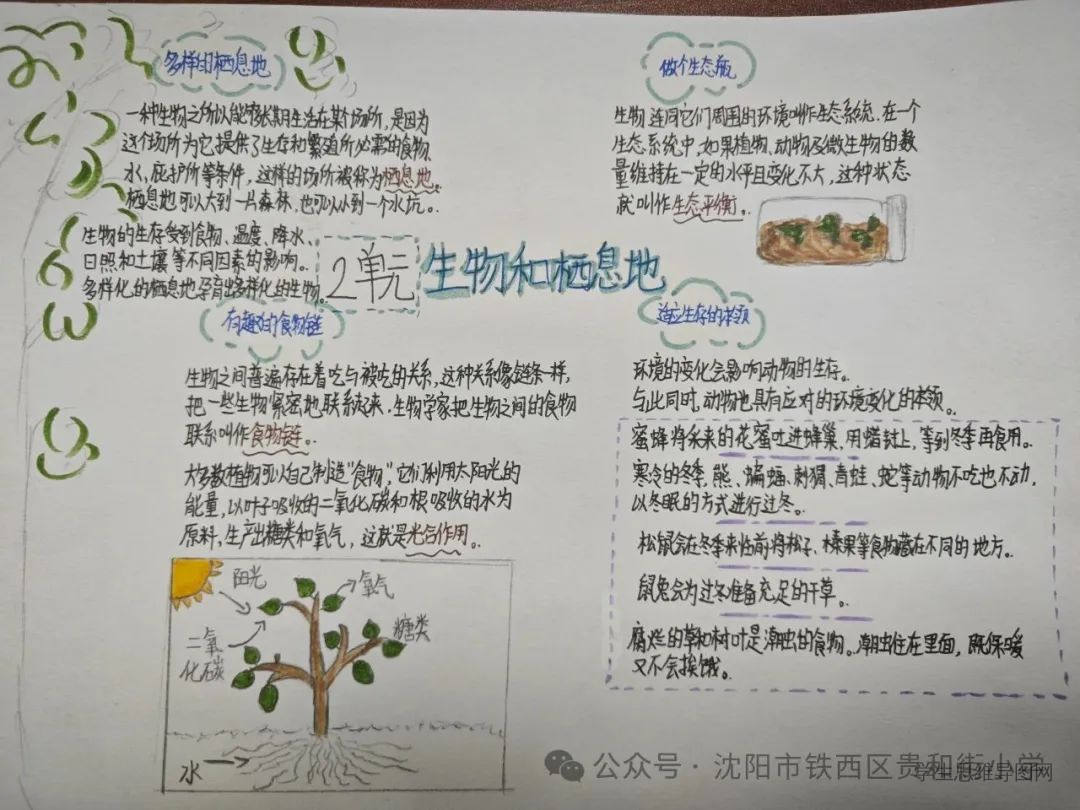 多样的栖息地
一种生物之所以能够长期生活在某个场所,是因为
这个场所为它提供了生存和繁殖所必需的食物、
水、庇护所等条件,这样的场所被称为栖息地。
栖息地可以大到一片森林,也可以小到一个水坑。
生物的生存受到食物、温度、降水、
日照和土壤等不同因素的影响。
多样化的栖息地孕育出多样化的生物。
2单元 生物和栖息地
做个生态瓶
生物连同它们周围的环境叫作生态系统。在一个
生态系统中,如果植物、动物及微生物的数
量维持在一定的水平且变化不大,这种状态
就叫作生态平衡。
有趣的食物链
生物之间普遍存在着吃与被吃的关系,这种关系像链条一样,
把一些生物紧密地联系起来。生物学家把生物之间的食物
联系叫作食物链。
大多数植物可以自己制造“食物”,它们利用太阳光的
能量,以叶子吸收的二氧化碳和根吸收的水为
原料,生产出糖类和氧气,这就是光合作用。
阳光
氧气
二氧
化碳
糖类
水
适应生存的本领
环境的变化会影响动物的生存。
与此同时,动物也具有应对的环境变化的本领。
蜜蜂将采来的花蜜吐进蜂巢,用蜡封上,等到冬季再食用。
寒冷的冬季,熊、蝙蝠、刺猬、青蛙、蛇等动物不吃也不动,
以冬眠的方式进行过冬。
松鼠会在冬季来临前将松子、榛果等食物藏在不同的地方。
鼠兔会为过冬准备充足的干草。
腐烂的草和树叶是潮虫的食物。潮虫住在里面,既保暖
又不会挨饿。
公众号·沈阳市铁西区贵和街小学
学生思维导图网